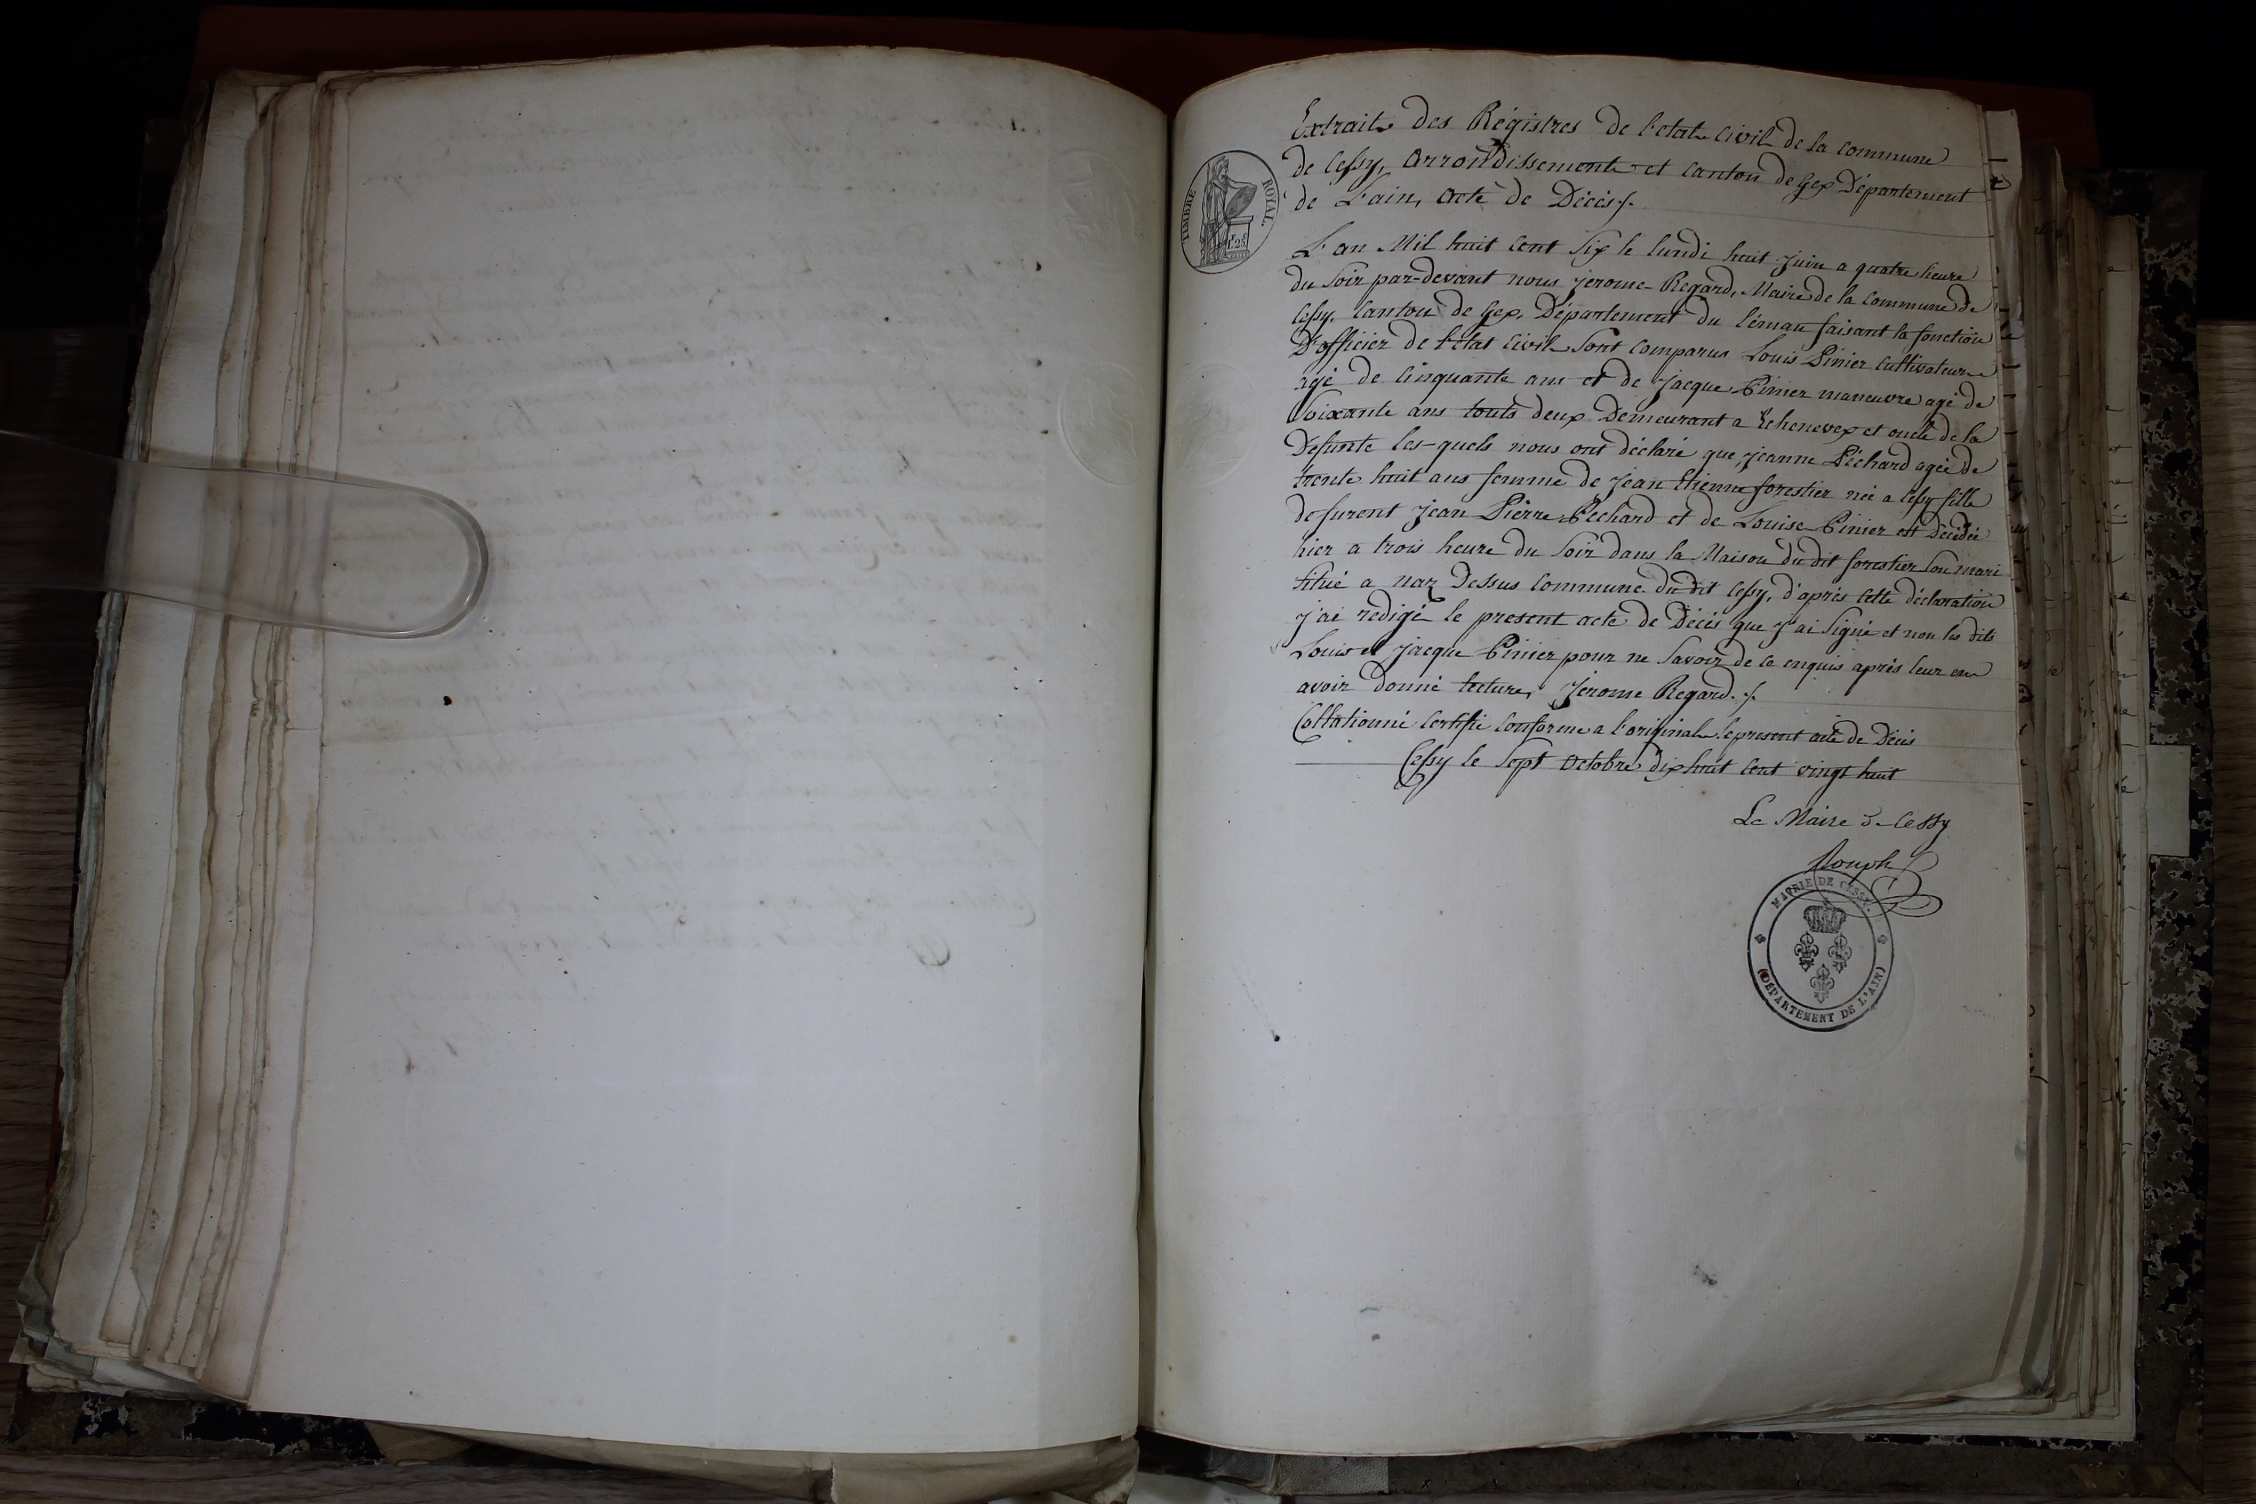 Extrait des Régistres de l'etat Civil de la Commune
de Cessy, Arrondissement et Canton de Gex Département
de L'ain, acte de Décès ./.
TIMBRE ROYAL.
L'an Mil huit Cent Six le lundi huit Juin a quatre heure
du Soir par-devant nous jerome Regard, Maire de la Commune de
Cessy, Canton de Gex, Département du Léman faisant la fonction
D'officier de l'état Civil Sont Comparus Louis Pinier Cultivateur
agé de Cinquante ans et de jacque Pinier maneuvre agé de
Soixante ans touts deux Demeurant a Echenevex et oncle de la
Defunte les-quels nous ont déclaré que jeanne Péchard agée de
trente huit ans femme de jean Etienne forestier née a Cessy fille
de furent jean Pierre Pechard et de Louise Pinier est décédée
hier a trois heure du Soir dans la Maison du dit forestier Son mari
Situé a naz Dessus Commune du dit Cessy, d'après Cette déclaration
j'ai redigé le present acte de Décès que j'ai Signé et non les dits
Louis et jacque Pinier pour ne Savoir de ce enquis après leur en
avoir Donné lecture, Jérome Regard ./.
Collationné Certifié Conforme a l'original le present acte de Décès
Cessy le Sept Octobre dix huit Cent vingt huit
Le Maire de Cessy
MAIRIE DE CESSY.
(DÉPARTEMENT DE L'AIN)